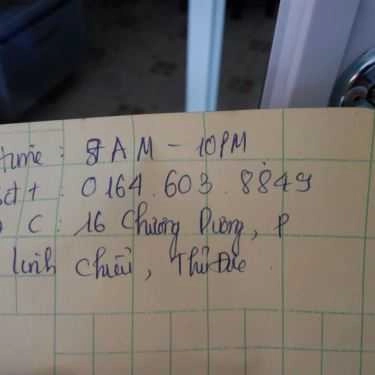 time : 8 AM - 10PM
sđt : 0164.603.8849
Đ C : 16 Chương Dương, P
Linh Chiểu, Thủ Đức.